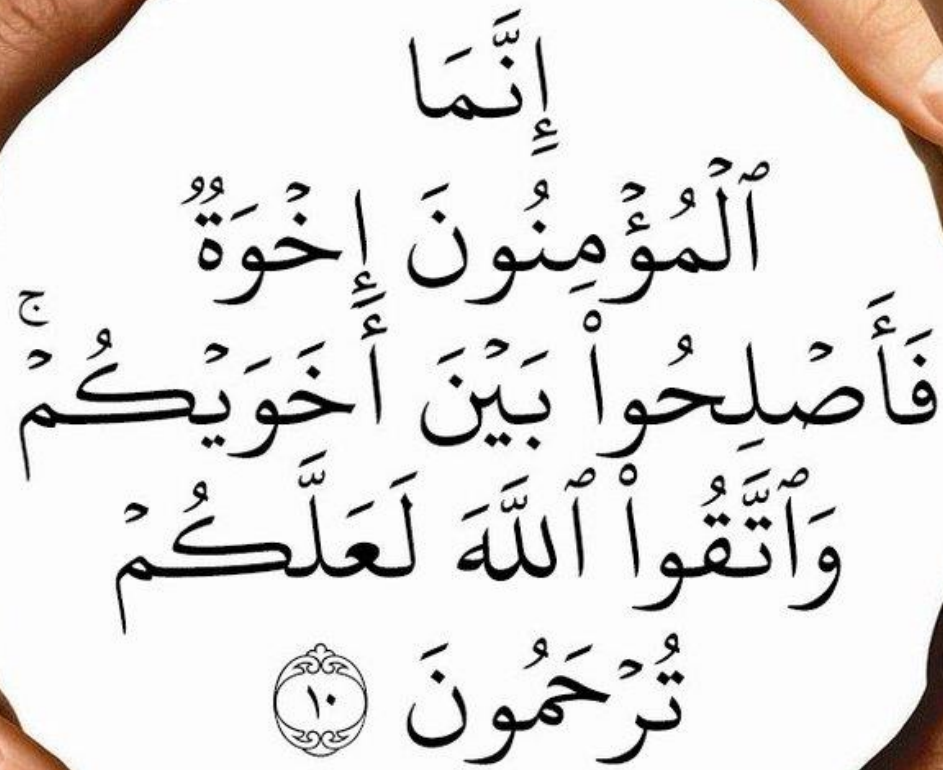 إِنَّمَا
ٱلۡمُؤۡمِنُونَ إِخۡوَةٞ
فَأَصۡلِحُواْ بَيۡنَ أَخَوَيۡكُمۡۚ
وَٱتَّقُواْ ٱللَّهَ لَعَلَّكُمۡ
تُرۡحَمُونَ ١٠